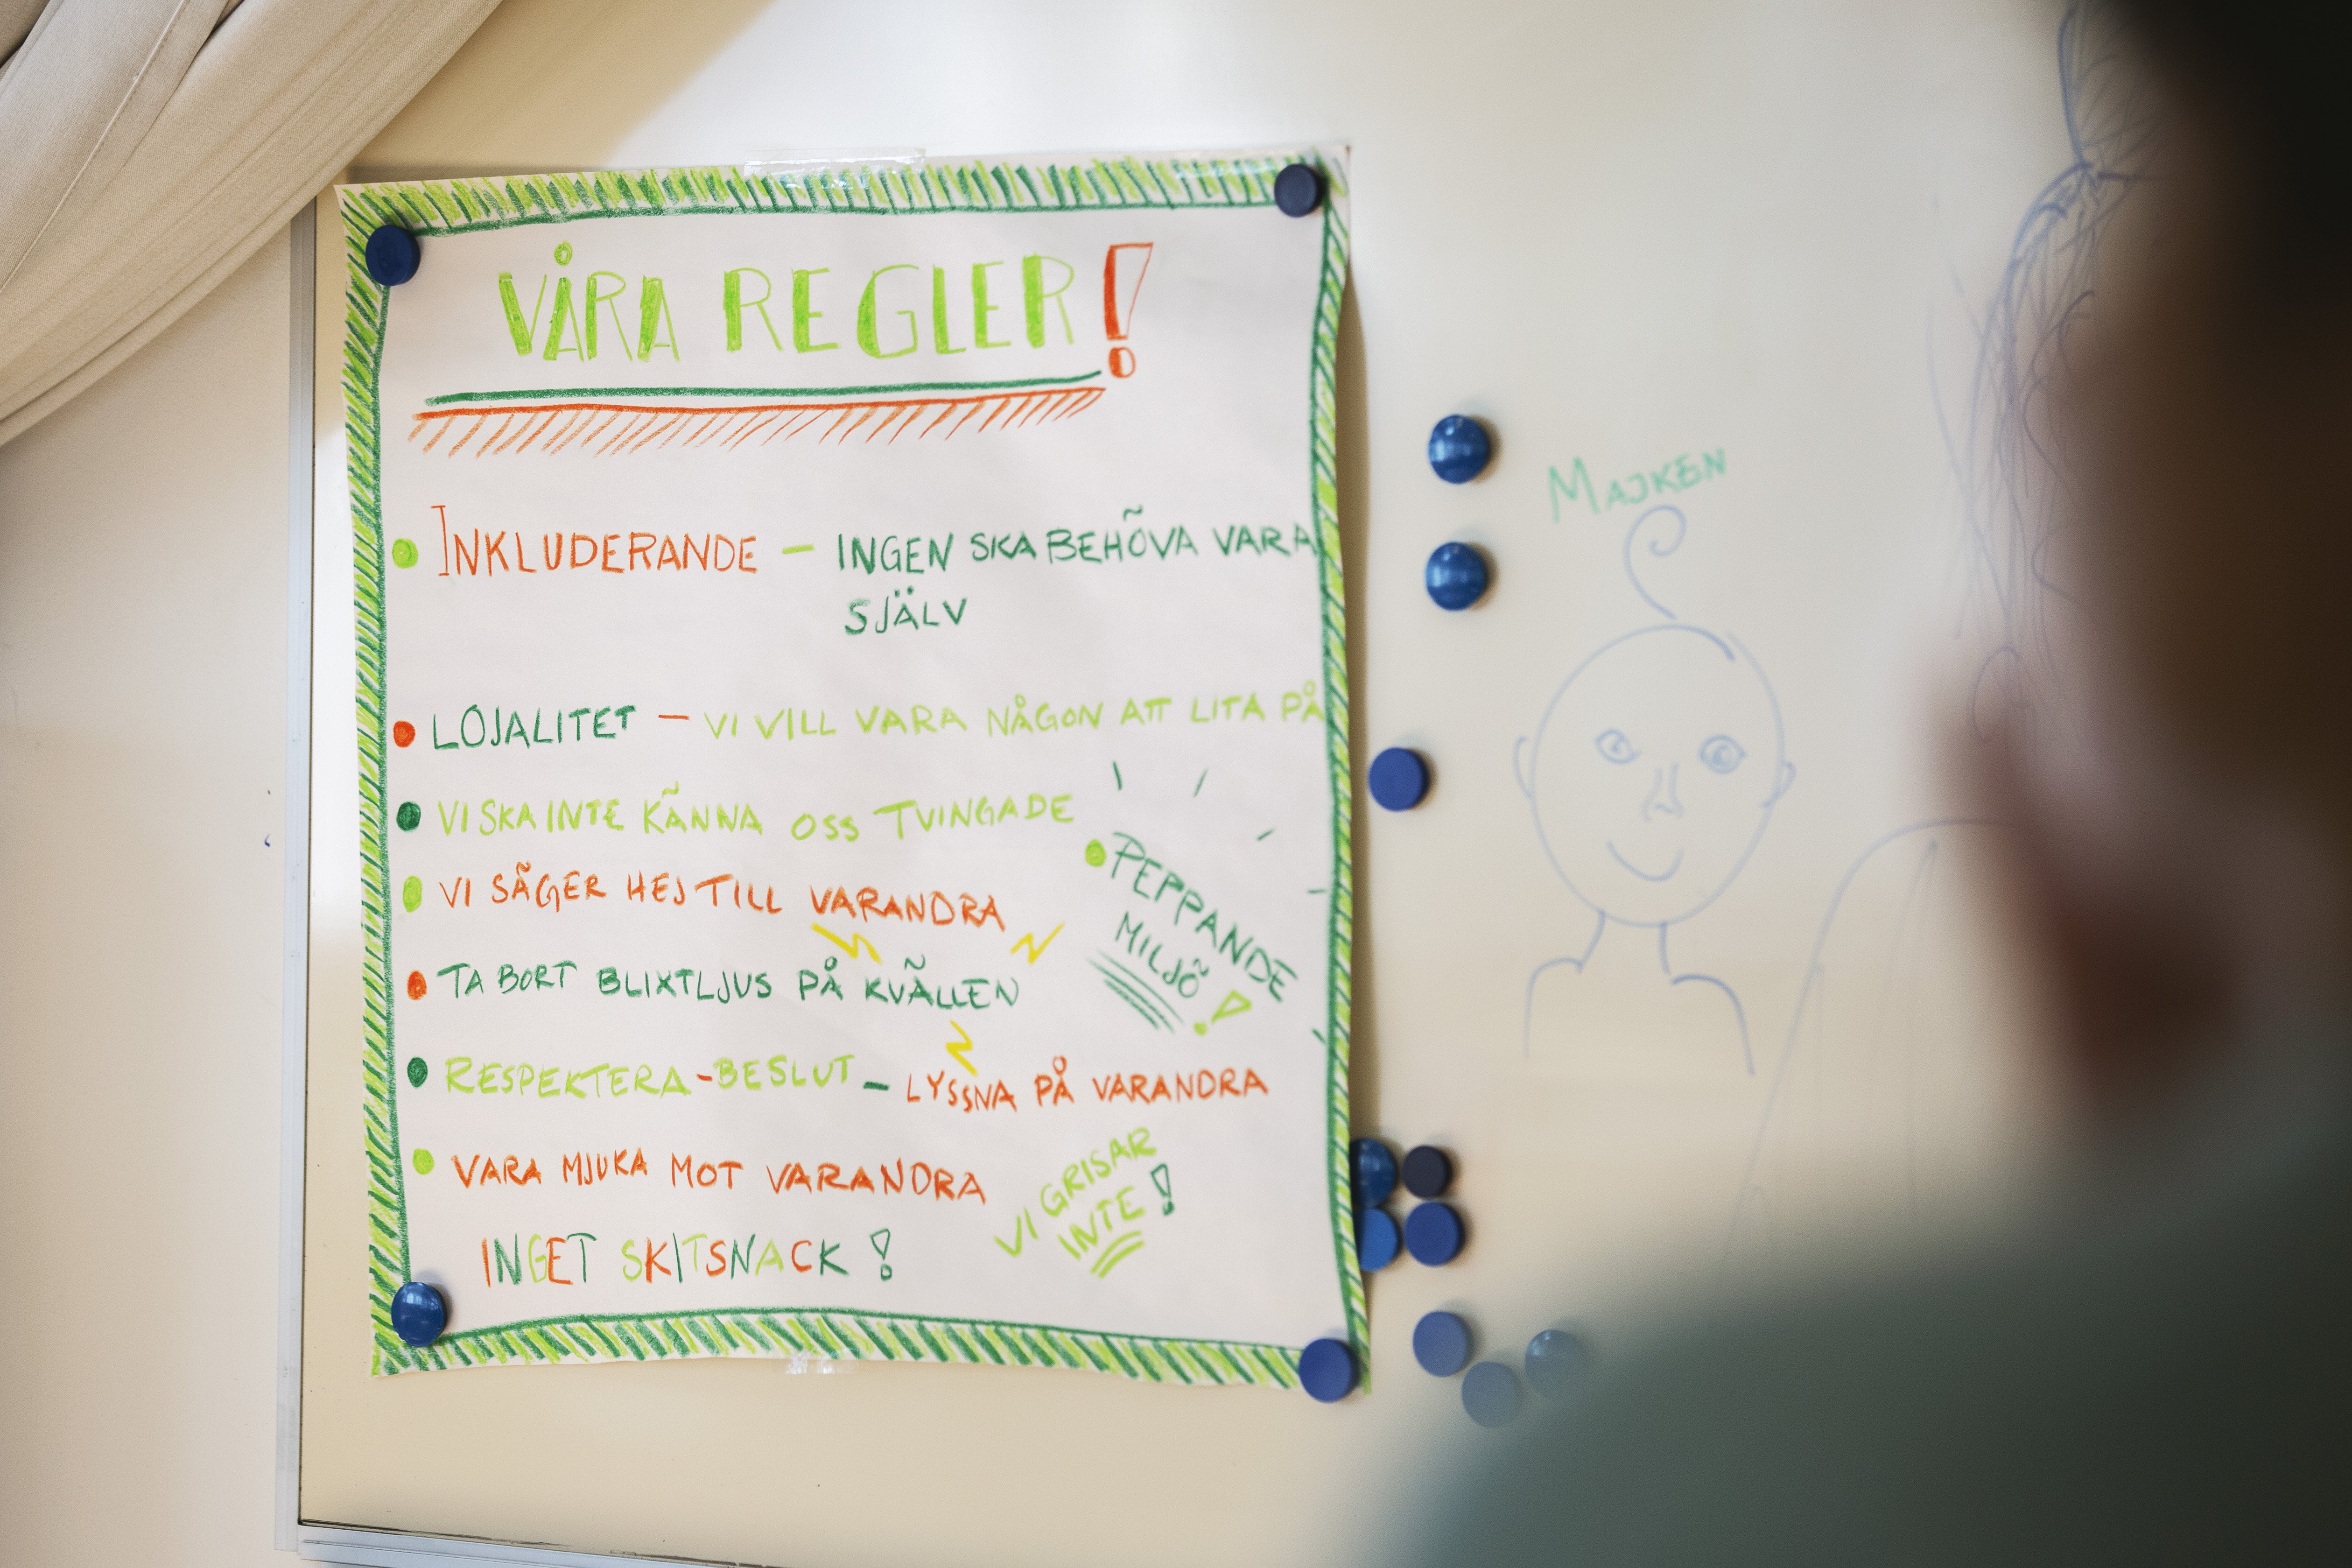 VÅRA REGLER!
INKLUDERANDE – INGEN SKA BEHÖVA VARA
SJÄLV
LOJALITET – VI VILL VARA NÅGON ATT LITA PÅ
VI SKA INTE KÄNNA OSS TVINGADE
VI SÄGER HEJ TILL VARANDRA
PEPPANDE
MILJÖ!
TA BORT BLIXTLJUS PÅ KVÄLLEN
RESPEKTERA-BESLUT – LYSSNA PÅ VARANDRA
VARA MJUKA MOT VARANDRA
VI GRISAR
INTE!
INGET SKITSNACK!
MAJKEN